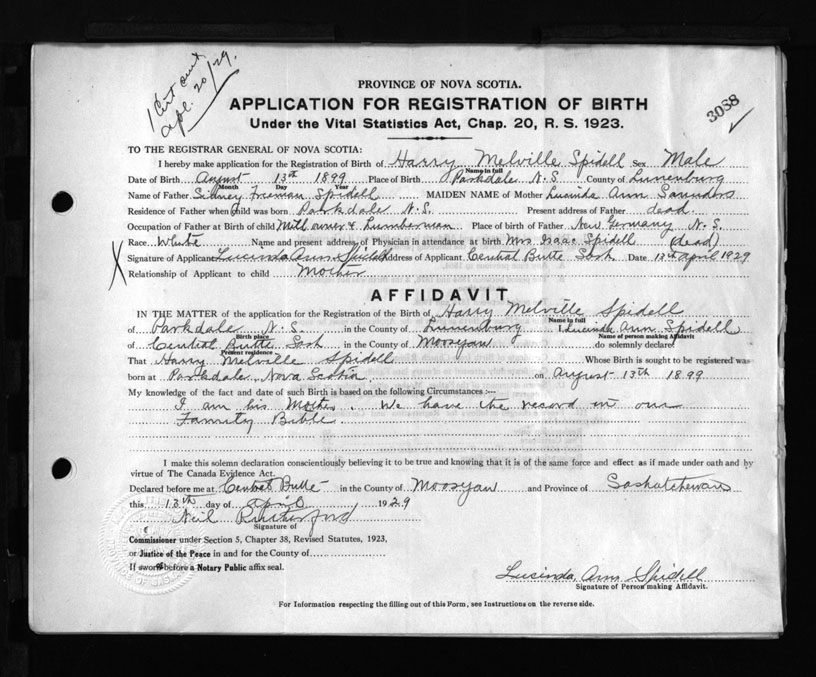 1 Cert sent
Apl. 20/29.
PROVINCE OF NOVA SCOTIA.
3088
APPLICATION FOR REGISTRATION OF BIRTH
Under the Vital Statistics Act, Chap. 20, R. S. 1923.
TO THE REGISTRAR GENERAL OF NOVA SCOTIA:
I hereby make application for the Registration of Birth of Harry Melville Spidell Sex Male
Name in full
Date of Birth August 13th 1899 Place of Birth Parkdale N.S. County of Lunenburg
Month Day Year
Name of Father Sidney Freeman Spidell MAIDEN NAME of Mother Lucinda Ann Saunders
Residence of Father when child was born Parkdale N.S. Present address of Father dead.
Occupation of Father at Birth of child Mill owner & Lumberman Place of birth of Father New Germany N.S.
Race White Name and present address of Physician in attendance at birth Mrs Isaac Spidell (dead)
Signature of Applicant Lucinda Ann Spidell Address of Applicant Central Butte Sask Date 13th April 1929
X Relationship of Applicant to child Mother
AFFIDAVIT
IN THE MATTER of the application for the Registration of the Birth of Harry Melville Spidell
Name in full
of Parkdale N.S. in the County of Lunenburg I, Lucinda Ann Spidell
Birth place Name of person making Affidavit
of Central Butte Sask in the County of Moosejaw do solemnly declare
Present residence
That Harry Melville Spidell Whose Birth is sought to be registered was
born at Parkdale Nova Scotia on August 13th 1899
My knowledge of the fact and date of such Birth is based on the following Circumstances :—
I am his Mother. We have the record in our
Family Bible.
I make this solemn declaration conscientiously believing it to be true and knowing that it is of the same force and effect as if made under oath and by
virtue of The Canada Evidence Act.
Declared before me at Central Butte in the County of Moosejaw and Province of Saskatchewan
this 13th day of April 1929
Neil Rutherford
Signature of
Commissioner under Section 5, Chapter 38, Revised Statutes, 1923,
or Justice of the Peace in and for the County of
If sworn before a Notary Public affix seal.
Lucinda Ann Spidell
Signature of Person making Affidavit.
For Information respecting the filling out of this Form, see Instructions on the reverse side.